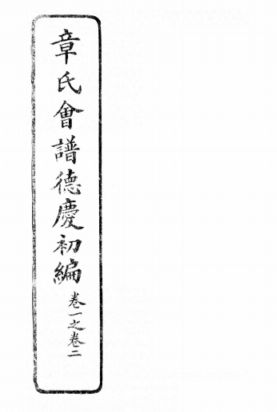 章氏會譜德慶初編
卷一之卷二